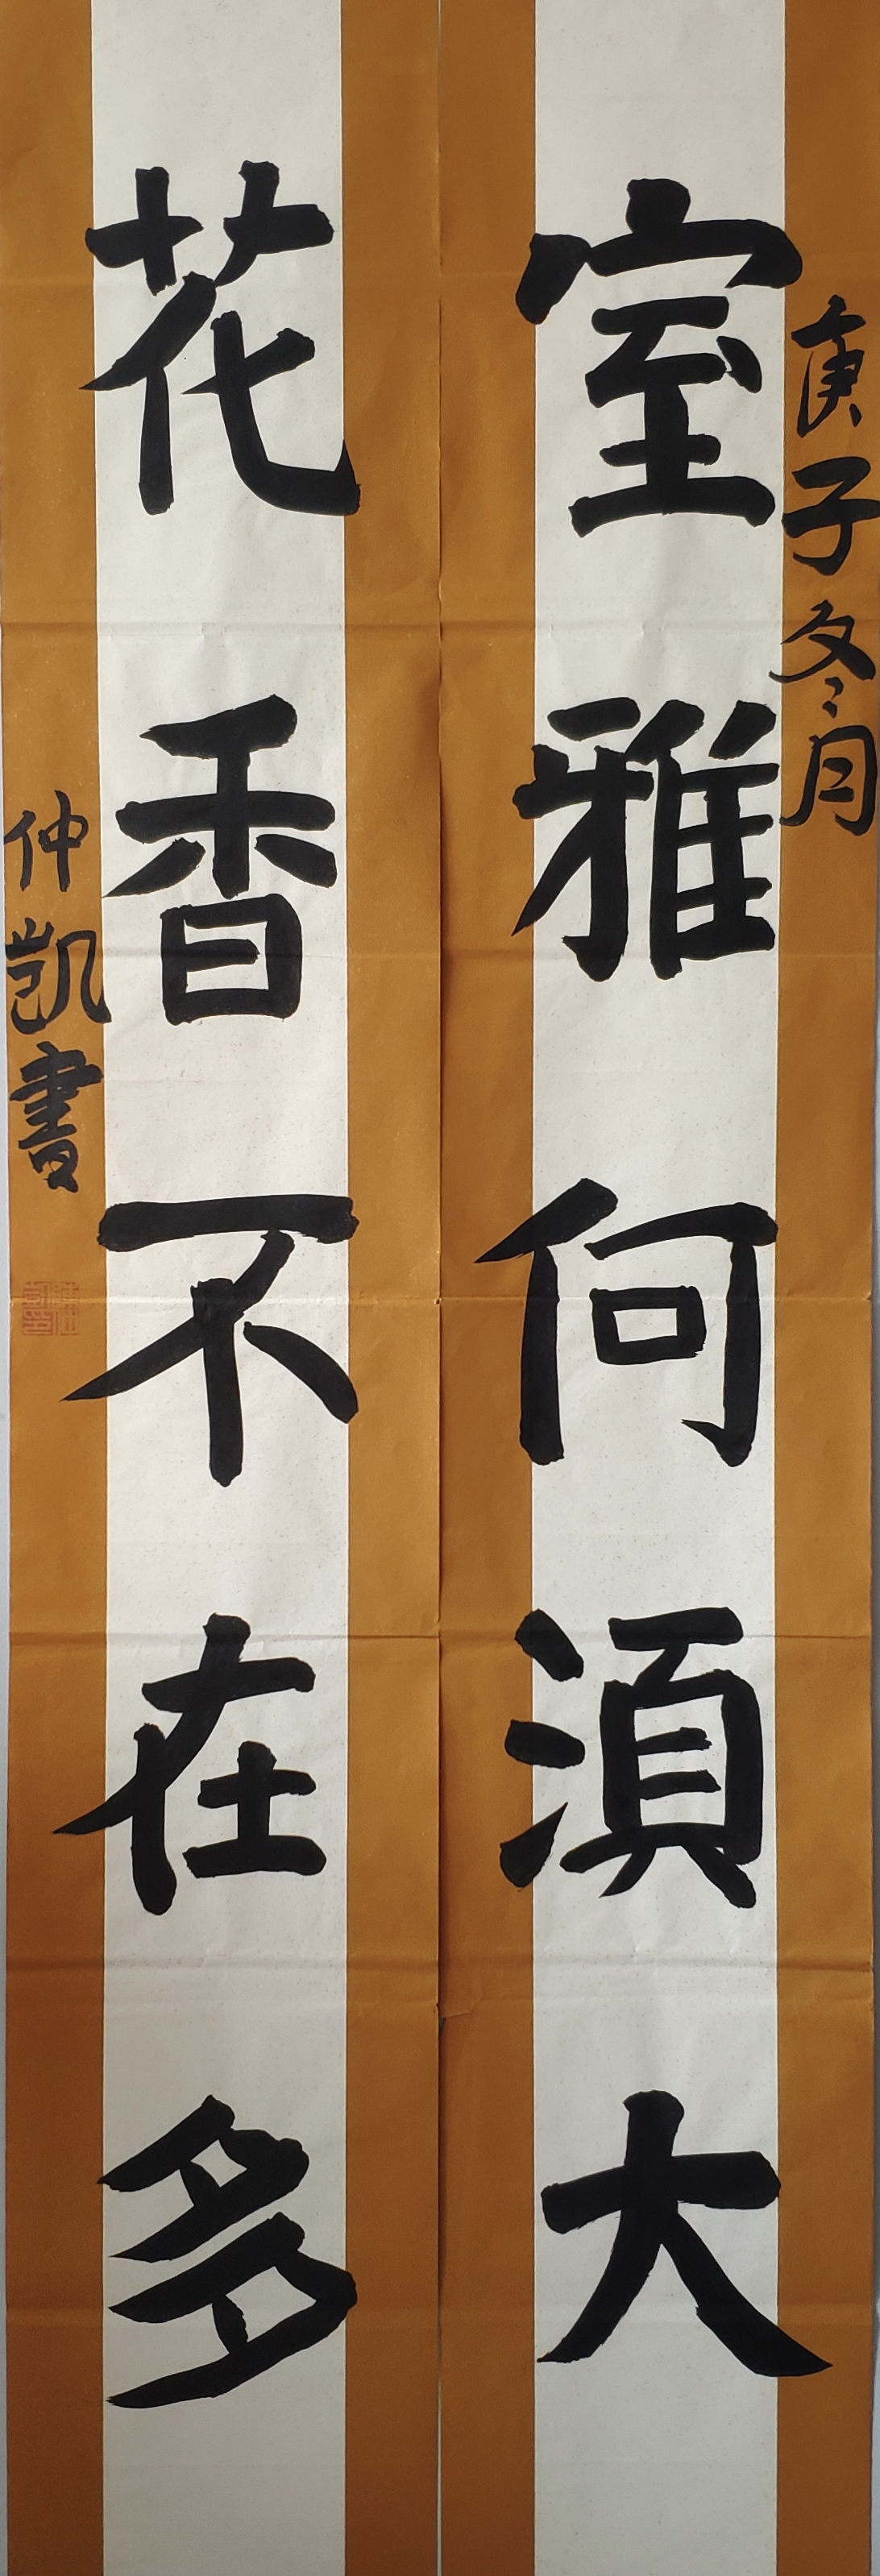 庚子冬月
室雅何湏大
花香不在多
仲凯書